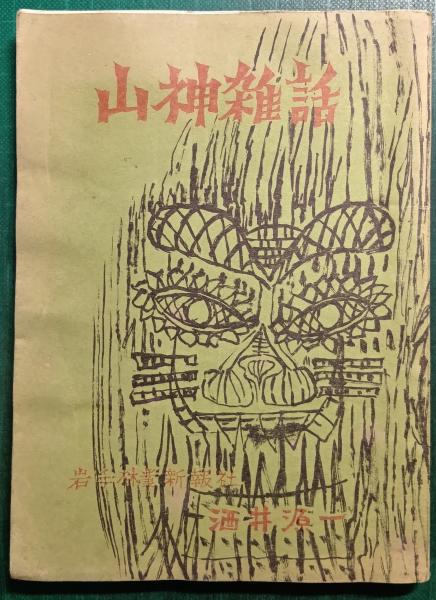 山神雑話
岩手林業新報社
酒井源一